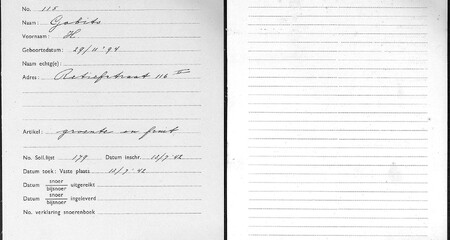 No. 115
Naam: Gobits
Voornaam: H.
Geboortedatum: 29/11 '94
Naam echtg(e):
Adres: Retiefstraat 116 II
Artikel: groente en fruit
No. Soll.lijst 179 Datum inschr. 13/7 '42
Datum toek: Vaste plaats 13/7 '42
Datum snoer
bijsnoer uitgereikt
Datum snoer
bijsnoer ingeleverd
No. verklaring snoerenboek